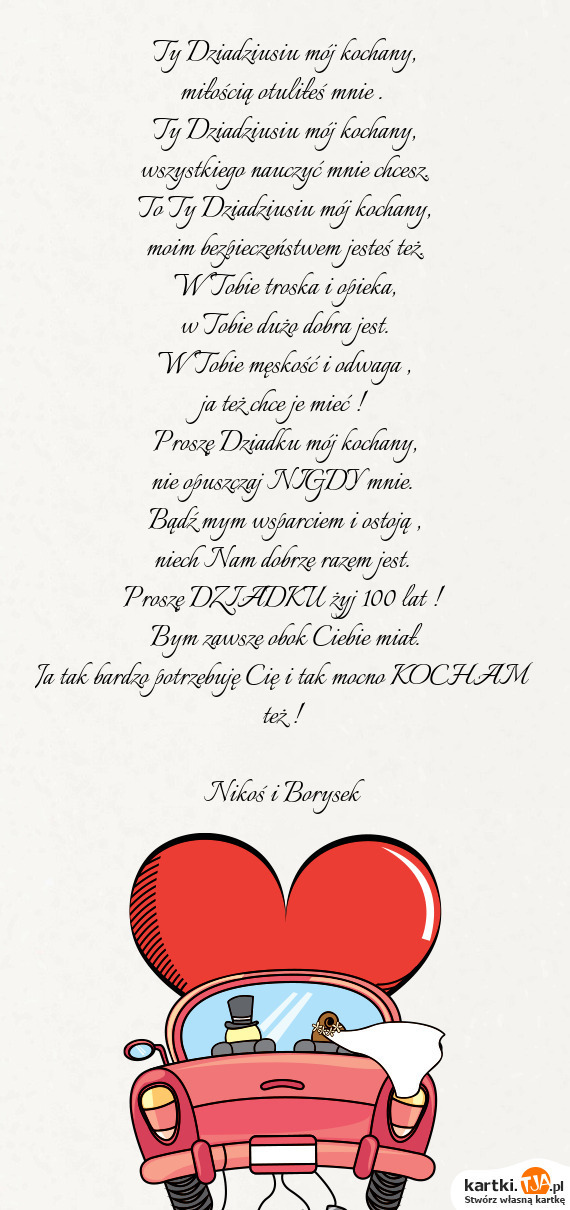 Ty Dziadziusiu mój kochany,
miłością otuliłeś mnie .
Ty Dziadziusiu mój kochany,
wszystkiego nauczyć mnie chcesz.
To Ty Dziadziusiu mój kochany,
moim bezpieczeństwem jesteś też.
W Tobie troska i opieka,
w Tobie dużo dobra jest.
W Tobie męskość i odwaga ,
ja też chce je mieć !
Proszę Dziadku mój kochany,
nie opuszczaj NIGDY mnie.
Bądź mym wsparciem i ostoją ,
niech Nam dobrze razem jest.
Proszę DZIADKU żyj 100 lat !
Bym zawsze obok Ciebie miał.
Ja tak bardzo potrzebuję Cię i tak mocno KOCHAM
też !
Nikoś i Borysek
kartki.TJA.pl
Stwórz własną kartkę